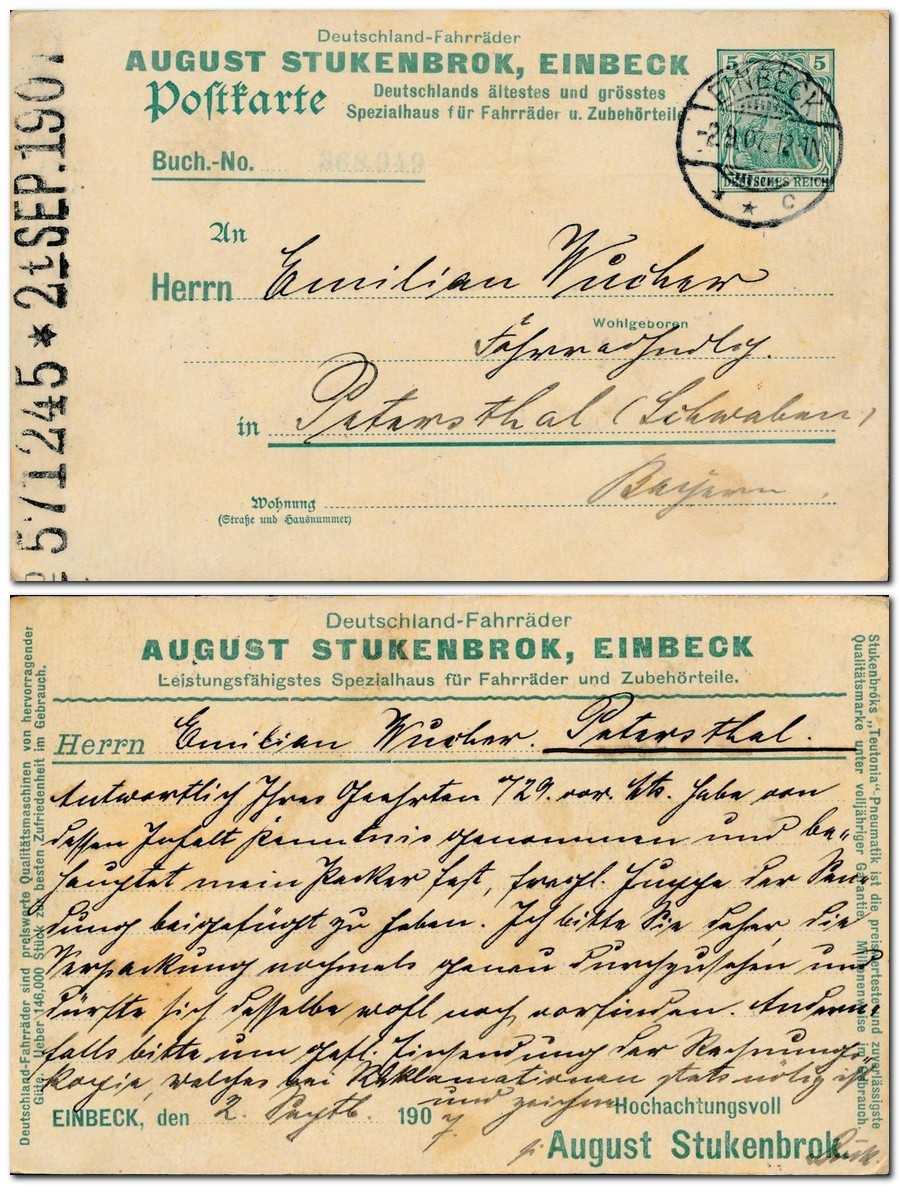 Deutschland-Fahrräder
AUGUST STUKENBROK, EINBECK
Postkarte
Deutschlands ältestes und grösstes
Spezialhaus für Fahrräder u. Zubehörteile
5 5
EINBECK
-2.9.07. 12-1N
* * c
DEUTSCHES REICH
Buch.-No. 368.949
571245 * 2t SEP. 1907
An
Herrn Emilian Wucher
Wohlgeboren
Fahrradhndlg.
in Petersthal (Schwaben)
Bayern.
Wohnung
(Straße und Hausnummer)
Deutschland-Fahrräder
AUGUST STUKENBROK, EINBECK
Leistungsfähigstes Spezialhaus für Fahrräder und Zubehörteile.
Herrn Emilian Wucher. Petersthal.
Antwortlich Ihres Geehrten 729. vor. Mts. habe von
dessen Inhalt Kenntnis genommen und be-
hauptet mein Packer fest, fragl. der Sen-
dung beigefügt zu haben. Ich bitte Sie daher die
Verpackung nochmals genau durchzusehen und
dürfte sich dasselbe wohl noch vorfinden. Andern-
falls bitte um gefl. Einsendung der Rechnungs-
kopie, welches bei Reklamationen stets nötig ist
und zeichne Hochachtungsvoll
EINBECK, den 2. Septb. 1907.
August Stukenbrok
Deutschland-Fahrräder sind preiswerte Qualitätsmaschinen von hervorragender
Güte. Ueber 146,000 Stück zur besten Zufriedenheit im Gebrauch.
Stukenbroks „Teutonia“-Pneumatik ist die preiswerteste und zuverlässigste
Qualitätsmarke unter volljähriger Garantie. Millionenweise im Gebrauch.